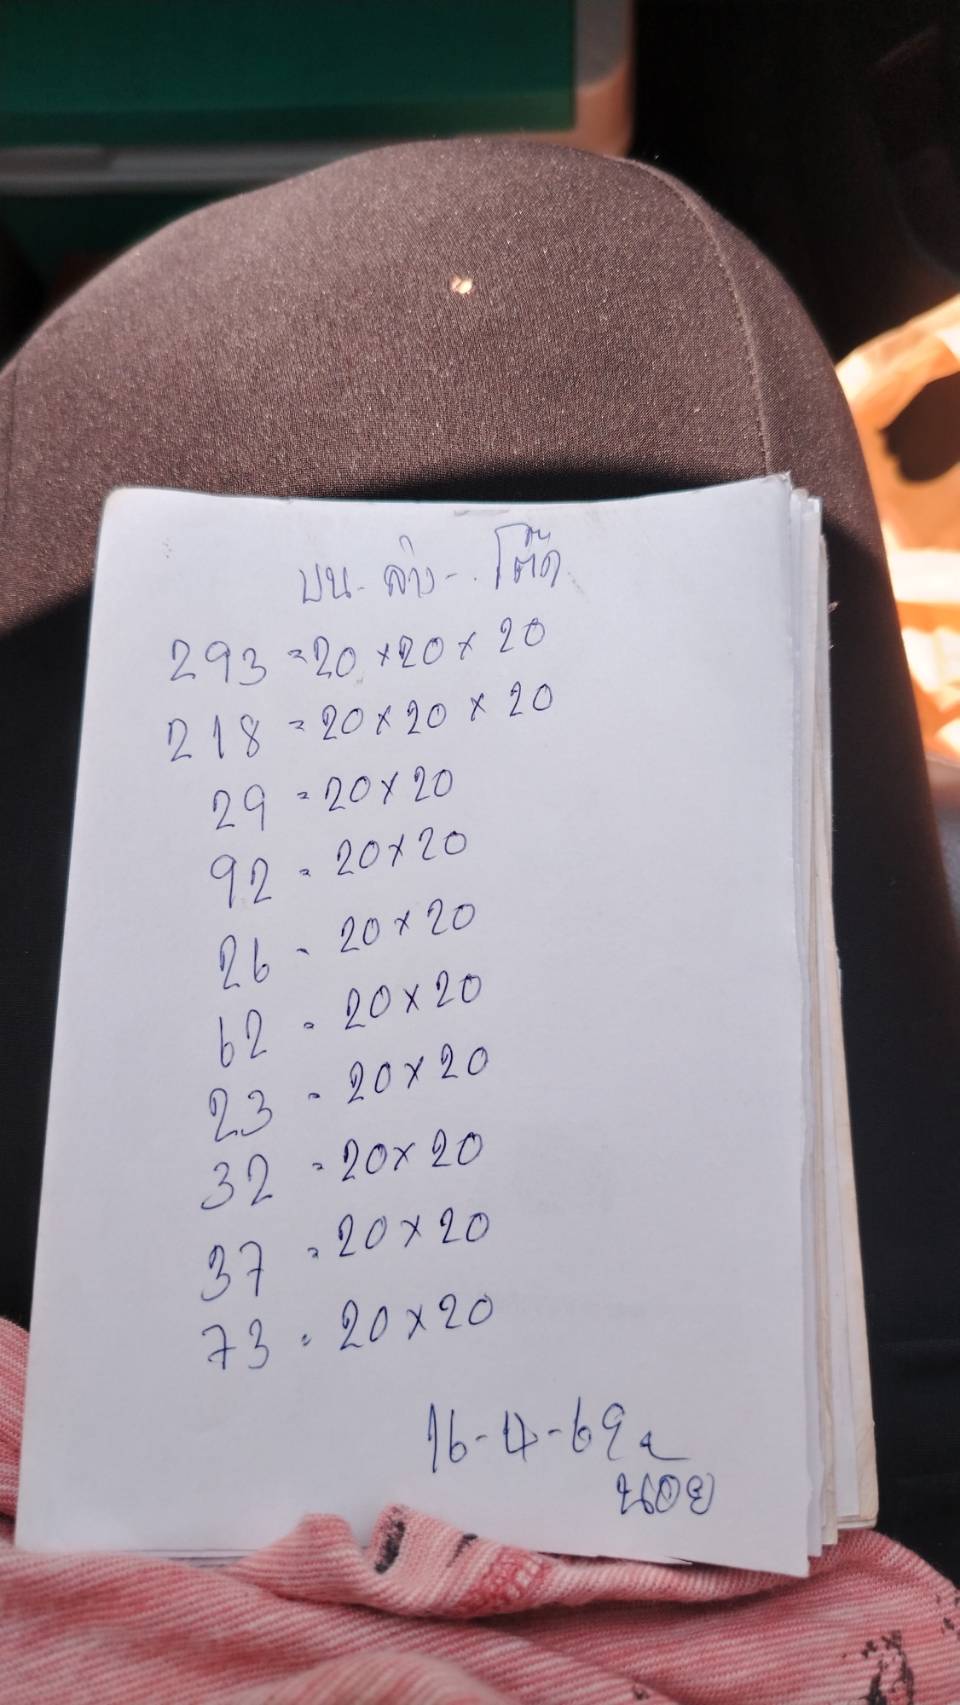 บน - ล่าง - โต๊ด
293 = 20 × 20 × 20
218 = 20 × 20 × 20
29 = 20 × 20
92 = 20 × 20
26 - 20 × 20
62 = 20 × 20
23 - 20 × 20
32 = 20 × 20
37 = 20 × 20
73 = 20 × 20
16 - 4 - 69
น้อย